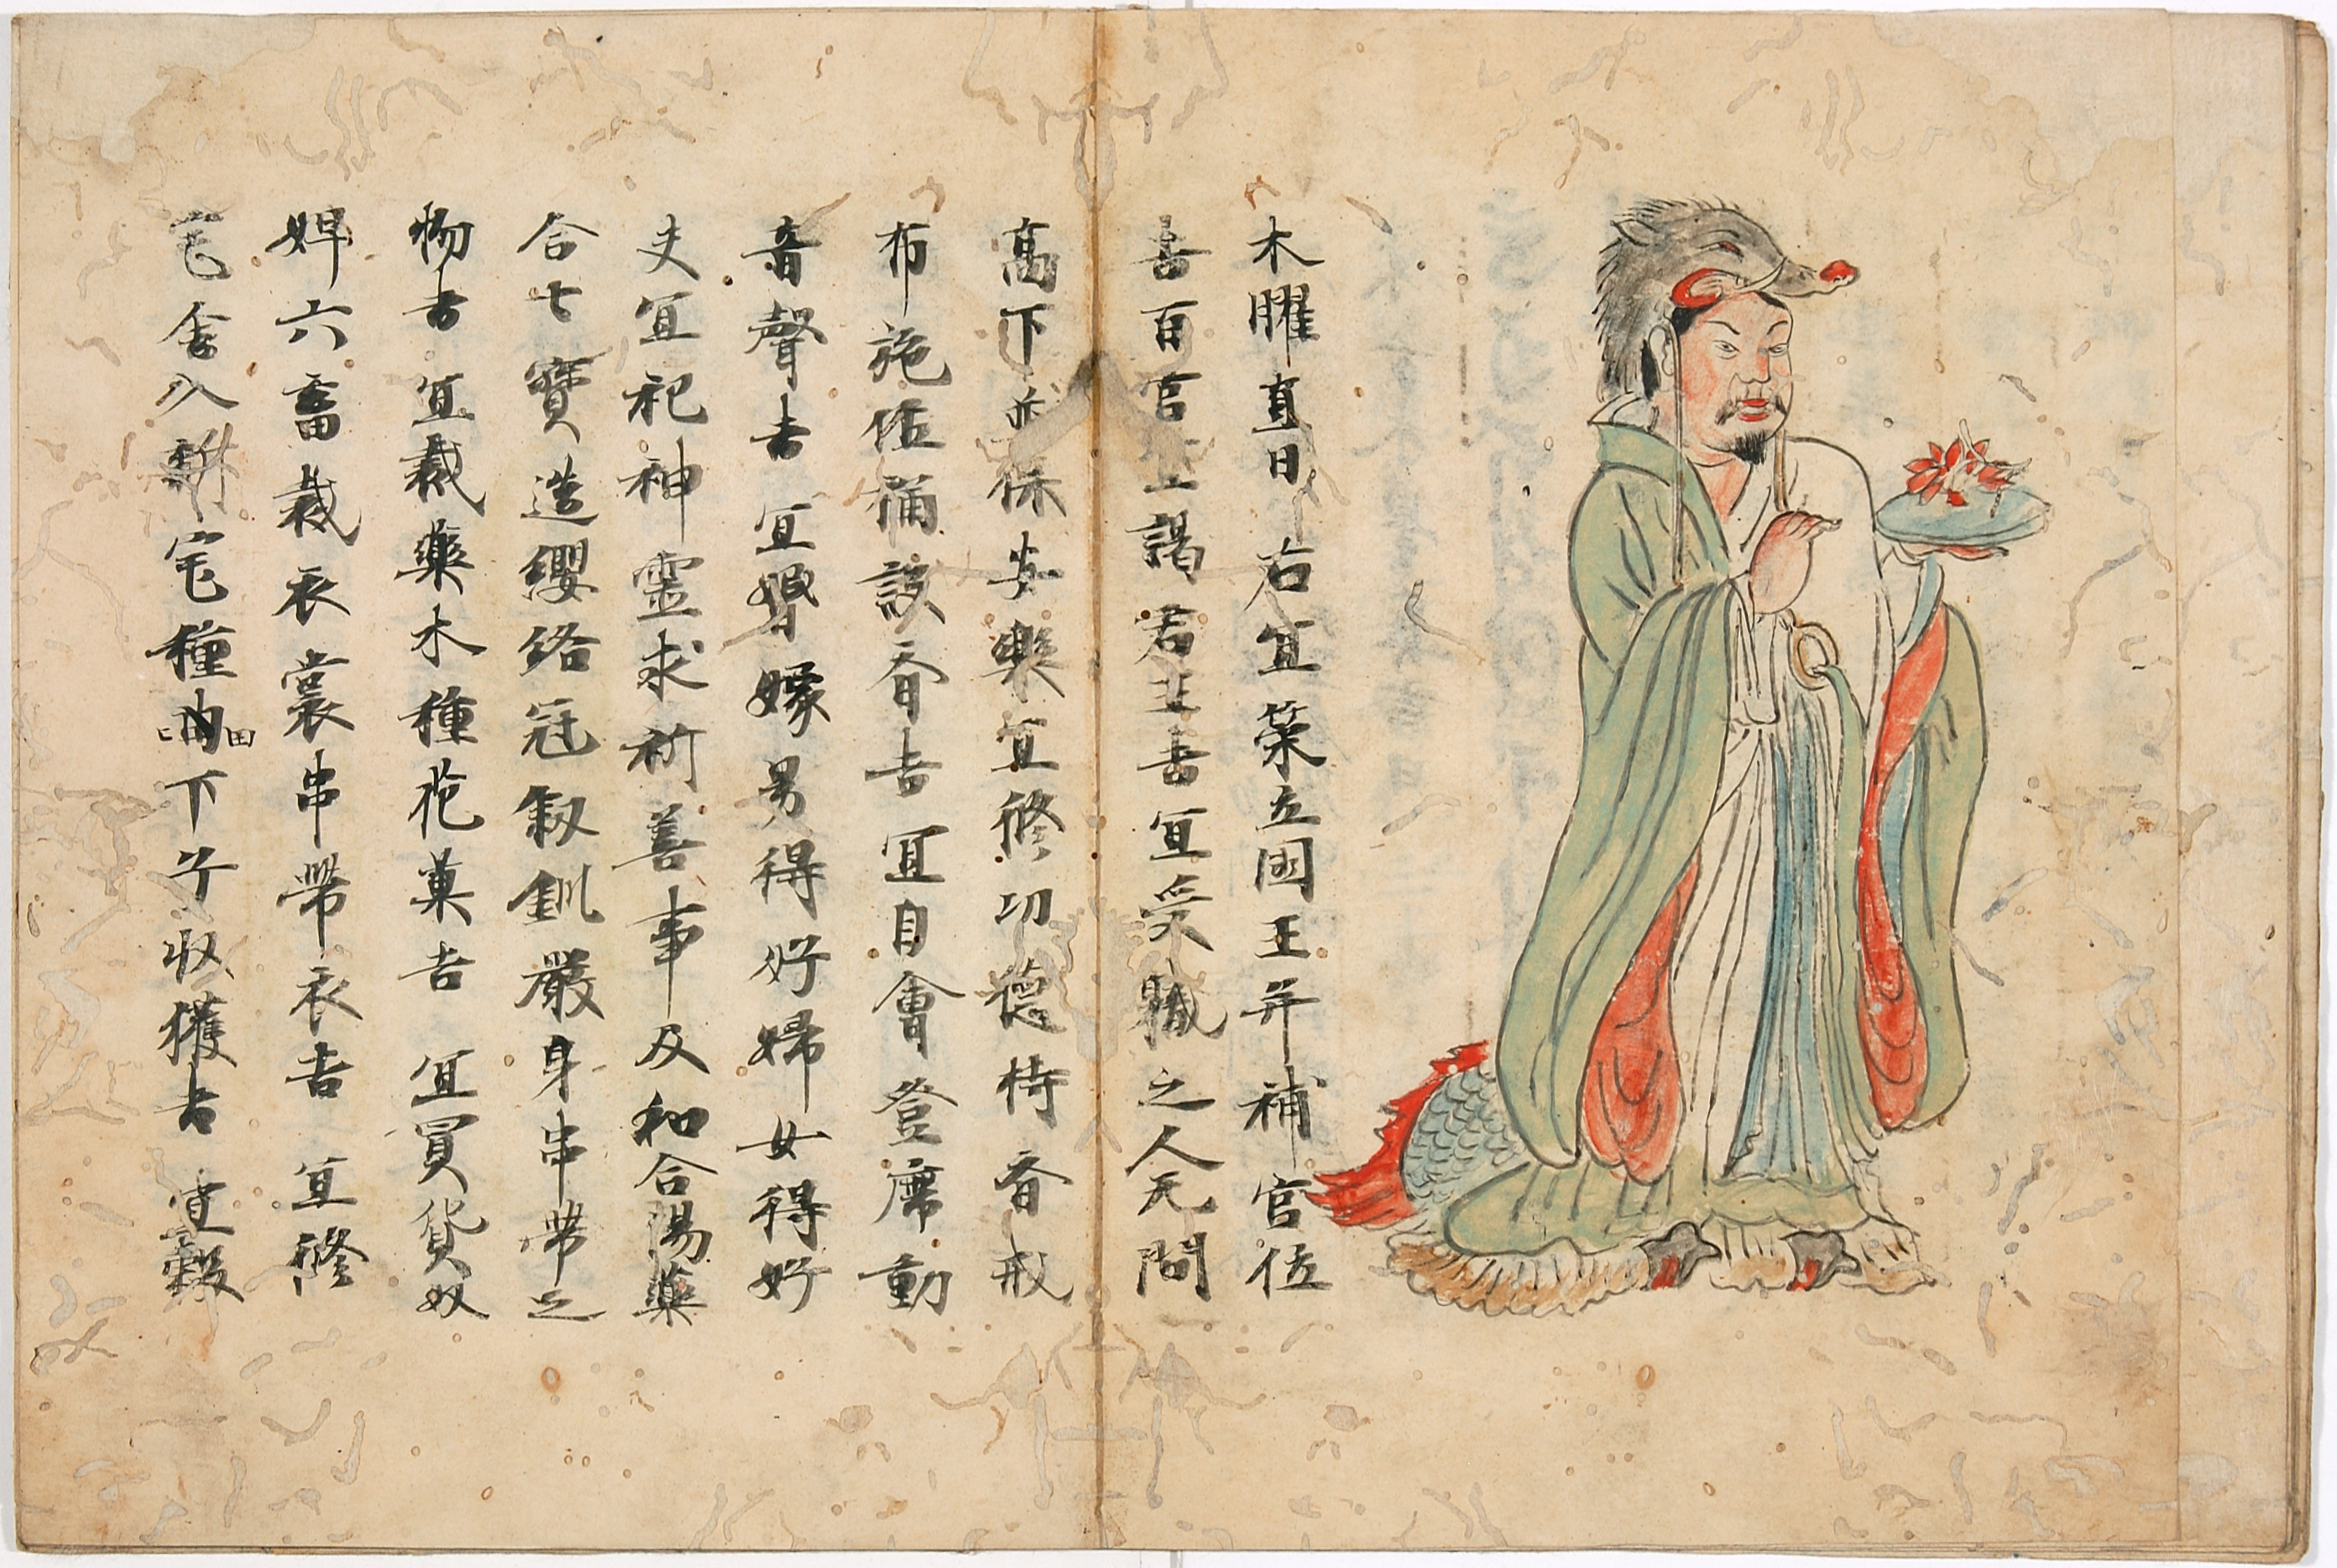 木曜直日 右宜策立國王并補官位
善百官上謁君王吉宜受職之人无問
高下並保安樂宜修功德持齋戒
布施偁誦設齋吉宜自會登席動
音聲吉宜婚嫁男得好婦女得好
夫宜祀神靈求祈善事及和合湯藥
合七寶造纓絡冠釵釧嚴身串帶之
物吉宜栽藥木種花菓吉 宜買貨奴
婢六畜裁衣裳串帶衣吉宜修
宅舍入新宅種田下子收穫吉 宜穀